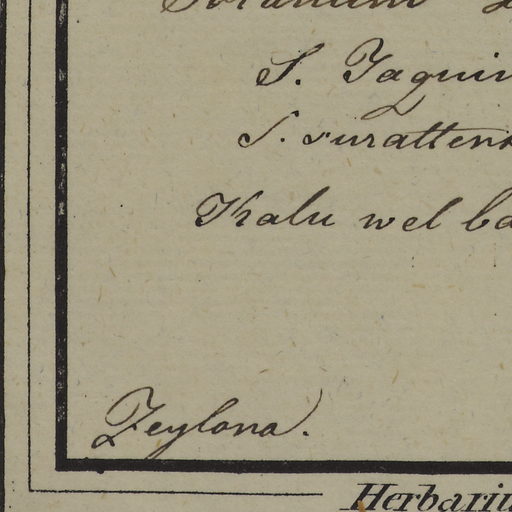 Solanum
S. Jaquin
S. surattens
Kalu wel ba
Zeylona.
Herbariu